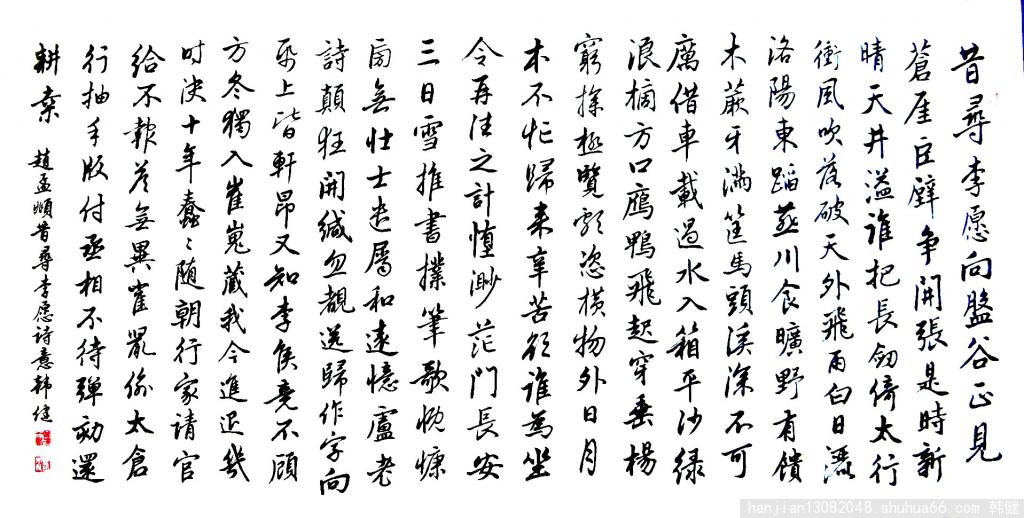 昔尋李愿向盤谷正見
蒼崖巨壁争開張是時新
晴天井溢誰把長劍倚太行
衝風吹落破天外飛雨白日灑
洛陽東蹈燕川食曠野有饋
木蕨牙滿筐馬頭溪深不可
厲借車載過水入箱平沙緑
浪摘方口鴈鴨飛起穿垂楊
窮探極覽頗恣橫物外日月
本不忙歸来辛苦欲誰為坐
令再往之計惰渺茫門長安
三日雪推書撲筆歌慨慷
旁無壮士遣屬和遠憶盧老
詩顛狂開緘忽覩送歸作字向
紙上皆軒昂又知李侯竟不顧
方冬獨入崔嵬藏我今進退幾
时决十年蠢々随朝行家請官
給不報答無異雀鼠偷太倉
行抽手版付丞相不待彈劾還
耕桑 趙孟頫昔尋李愿诗意韩健
hanjian13082048.shuhua66.com 韩健